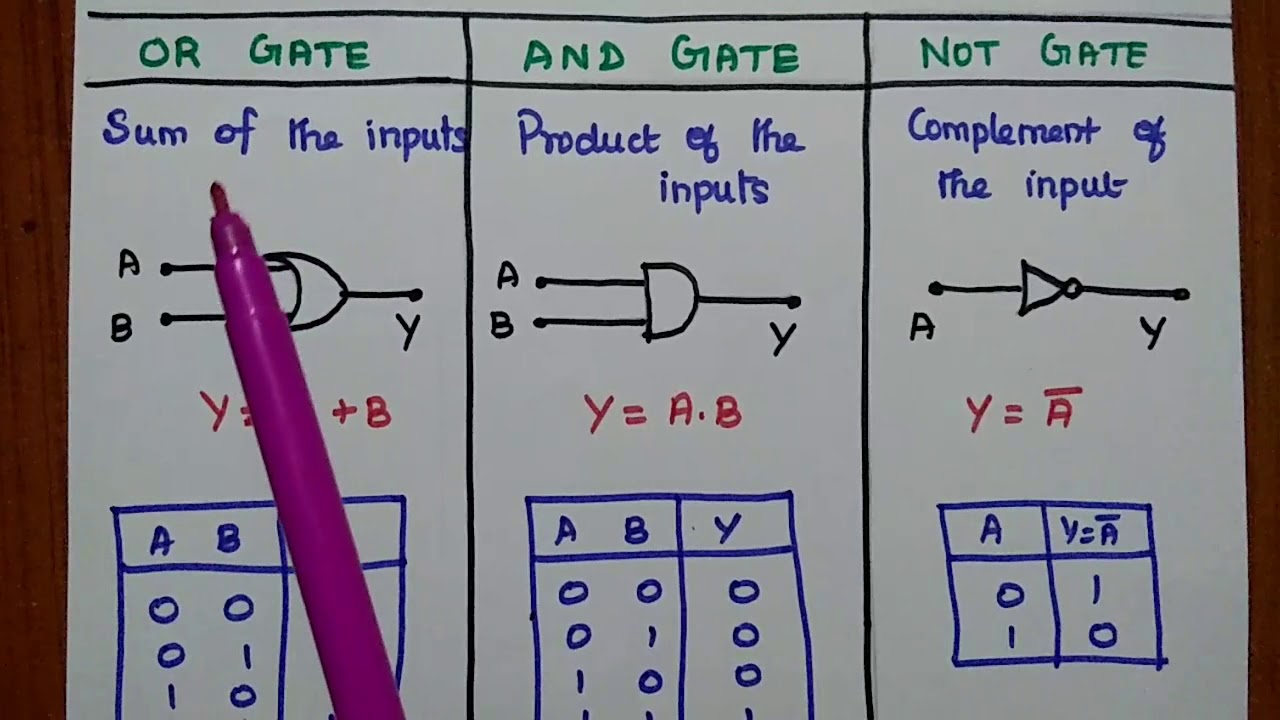 OR GATE
Sum of the inputs
A
B
Y
Y = + B
A B
0 0
0 1
1 0
AND GATE
Product of the
inputs
A
B
Y
Y = A . B
A B Y
0 0 0
0 1 0
1 0 0
1 1 1
NOT GATE
Complement of
the input
A
Y
Y = A̅
A Y=A̅
0 1
1 0